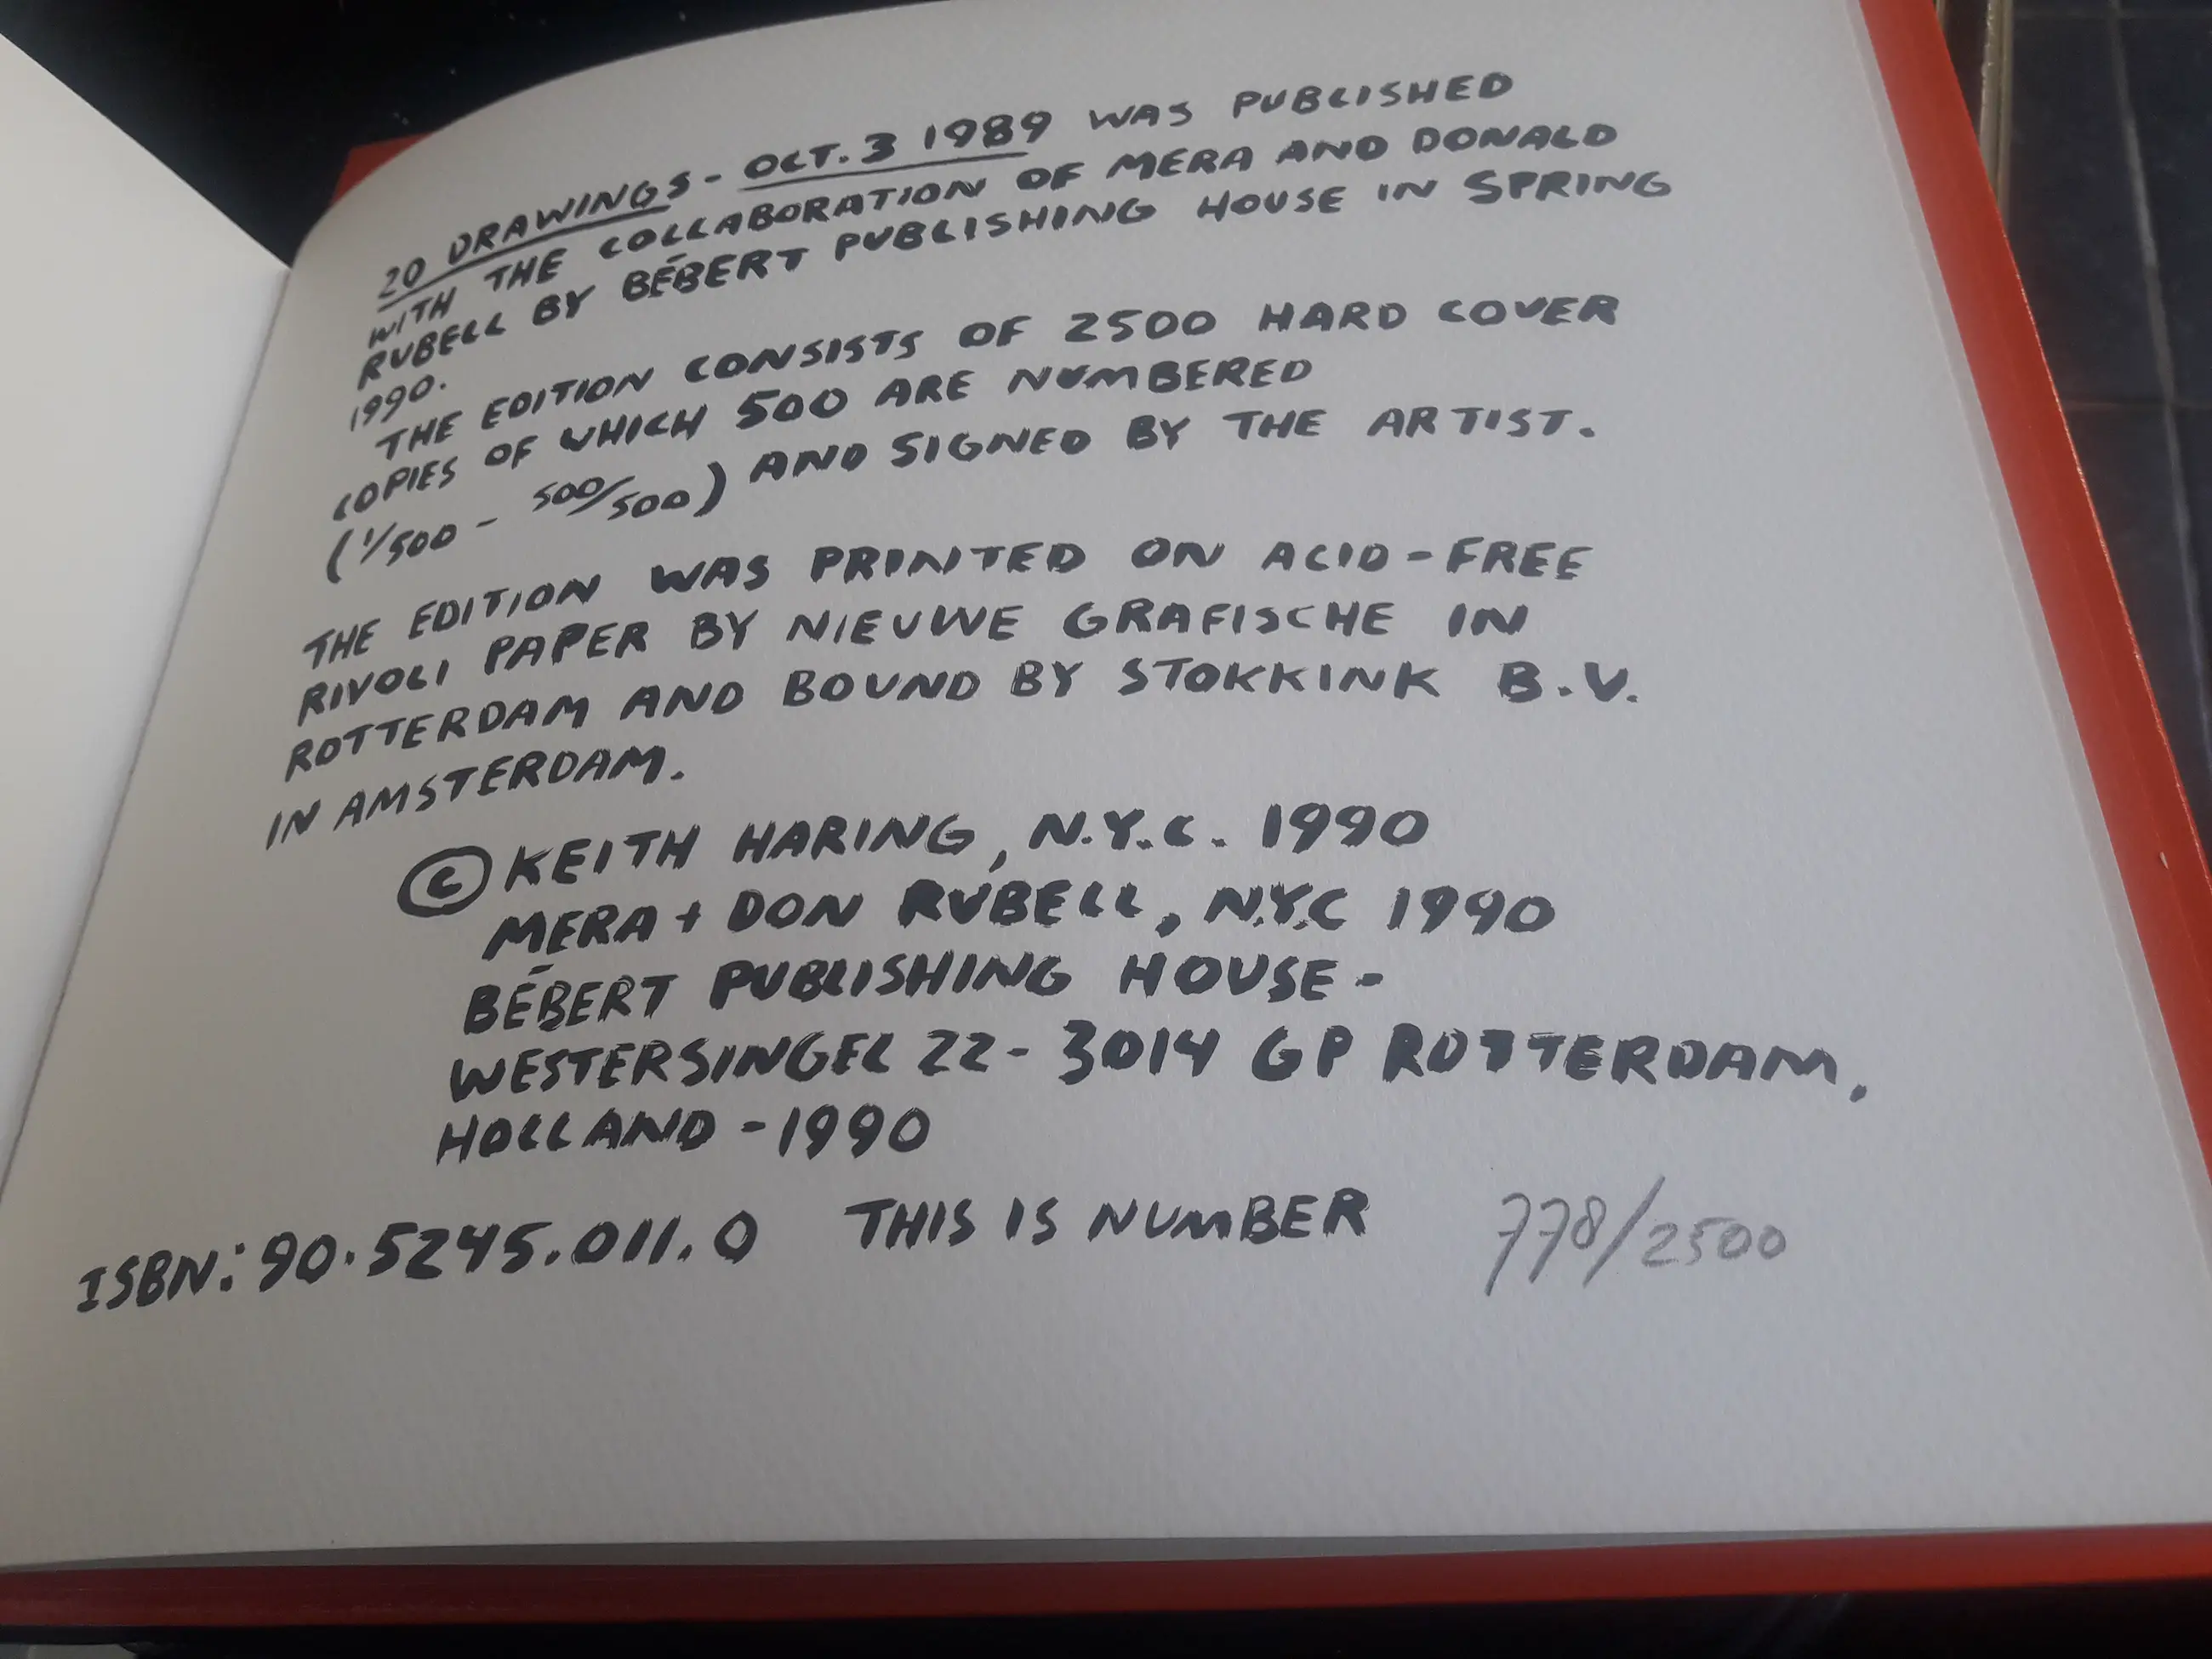 20 DRAWINGS - OCT. 3 1989 WAS PUBLISHED
WITH THE COLLABORATION OF MERA AND DONALD
RUBELL BY BÉBERT PUBLISHING HOUSE IN SPRING
1990.
THE EDITION CONSISTS OF 2500 HARD COVER
COPIES OF WHICH 500 ARE NUMBERED
(1/500 - 500/500) AND SIGNED BY THE ARTIST.
THE EDITION WAS PRINTED ON ACID-FREE
RIVOLI PAPER BY NIEUWE GRAFISCHE IN
ROTTERDAM AND BOUND BY STOKKINK B.V.
IN AMSTERDAM.
© KEITH HARING, N.Y.C. 1990
MERA + DON RUBELL, N.Y.C 1990
BÉBERT PUBLISHING HOUSE -
WESTERSINGEL 22 - 3014 GP ROTTERDAM.
HOLLAND - 1990
ISBN: 90.5245.011.0 THIS IS NUMBER 778/2500